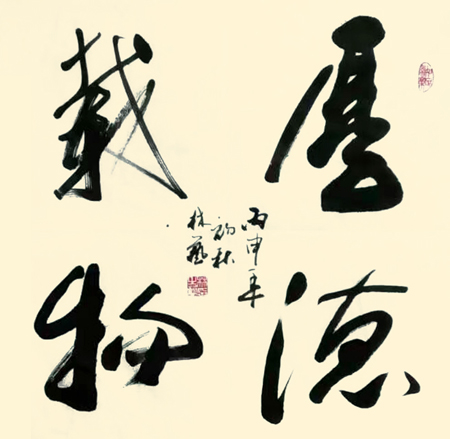 厚德
载物
丙申年
初秋
林艺